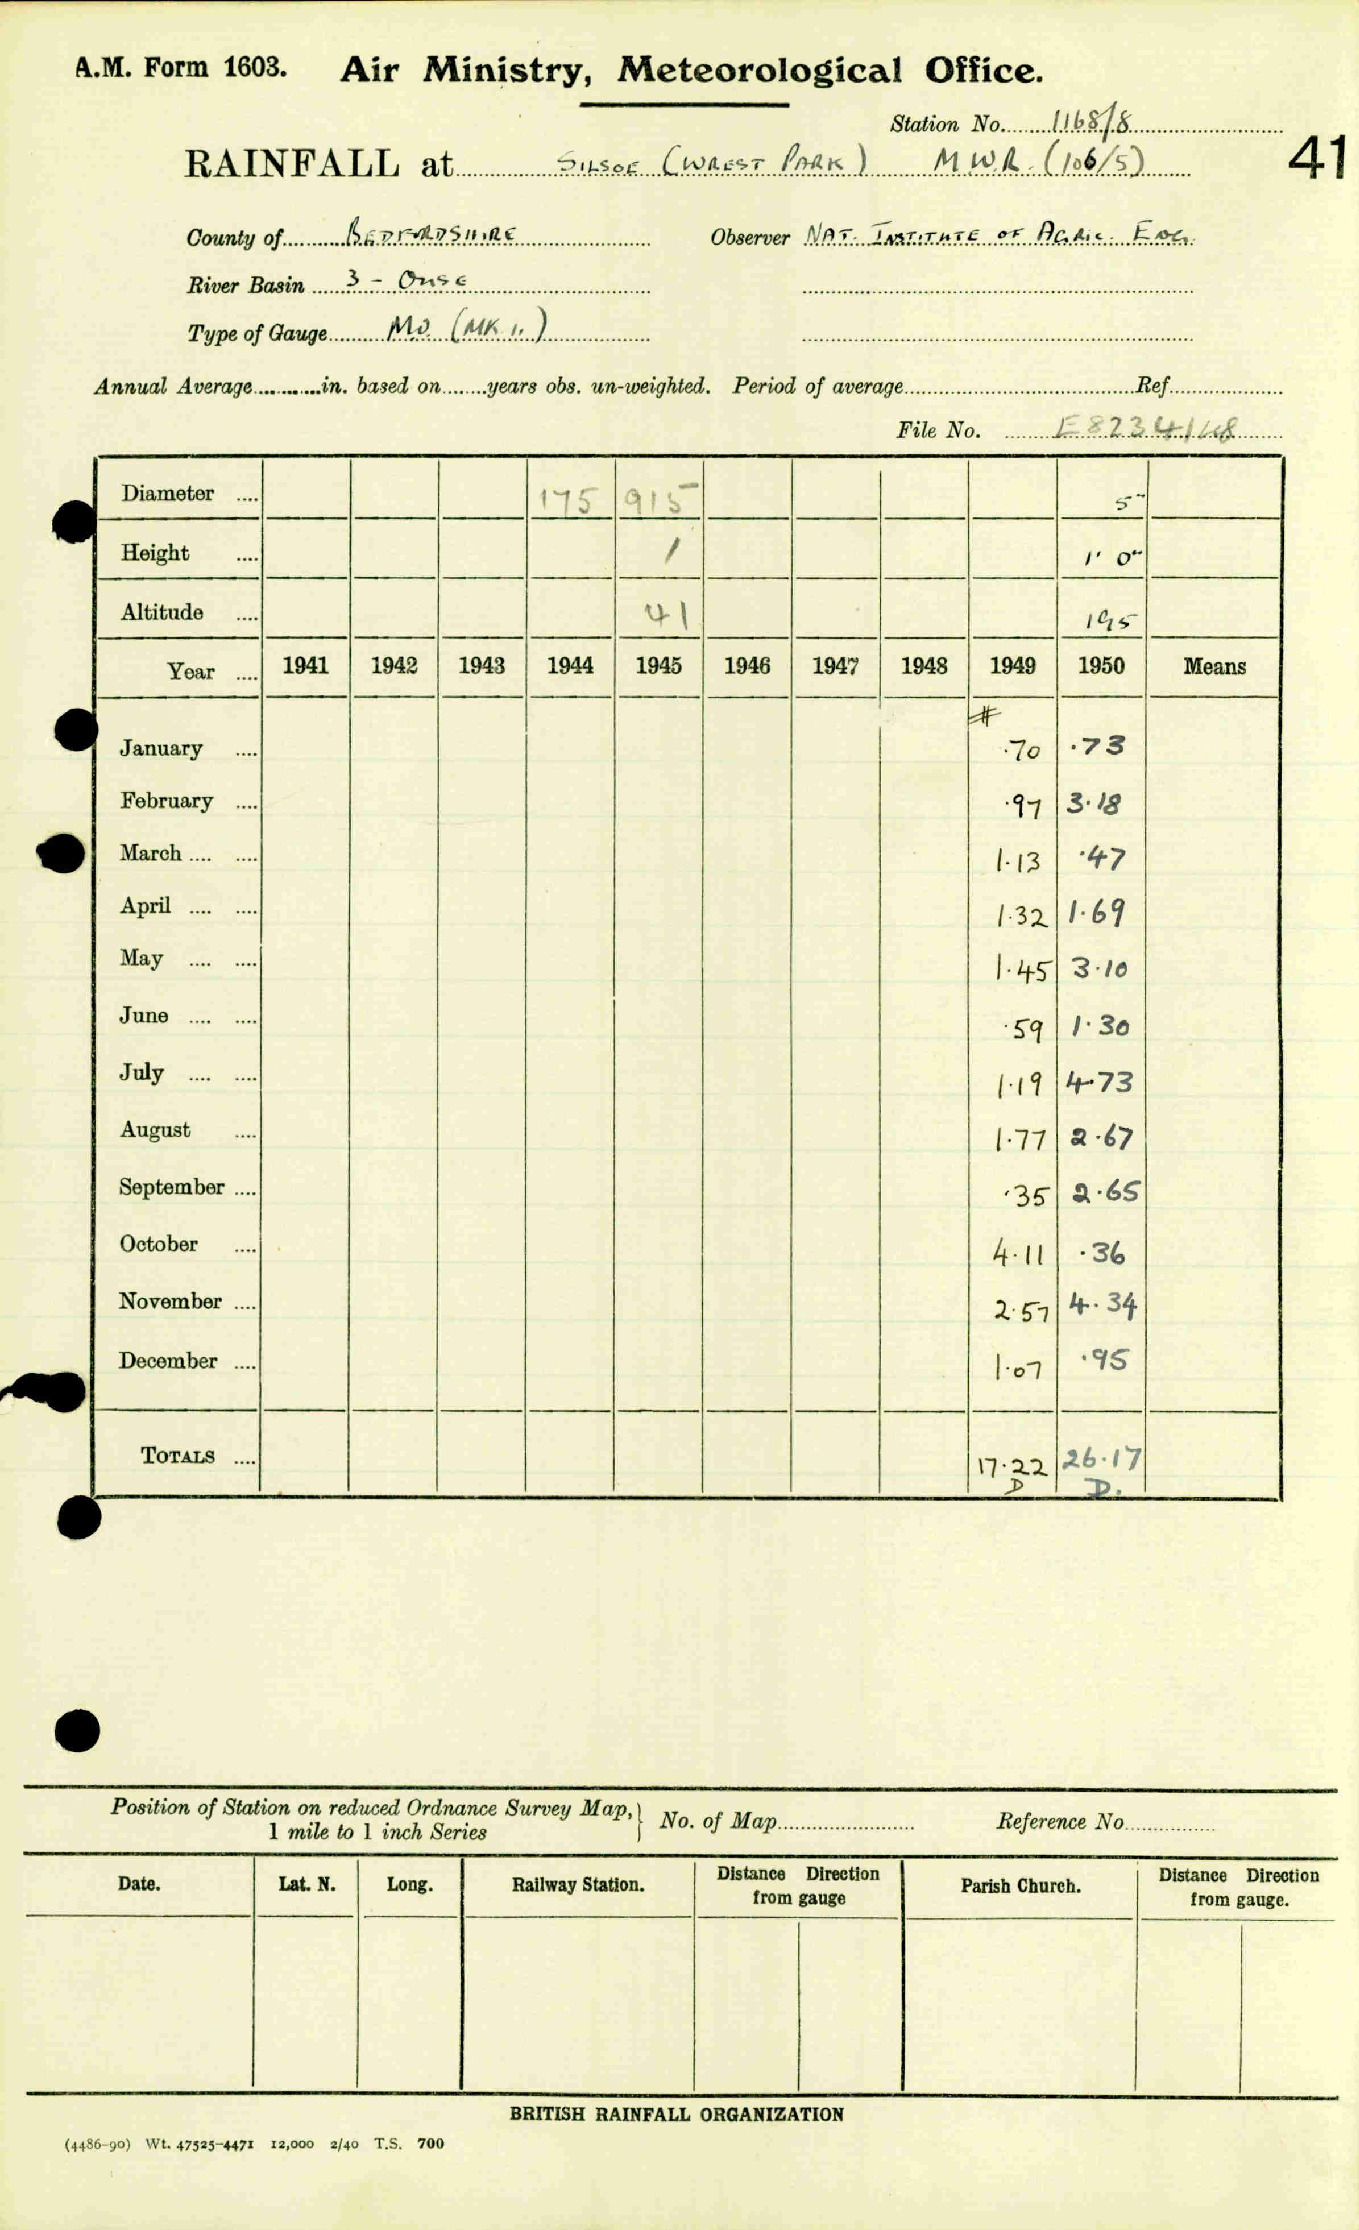 A.M. Form 1603. Air Ministry, Meteorological Office.
Station No. 1168/8
RAINFALL at SILSOE (WREST PARK) M.W.R. (106/5) 41
County of BEDFORDSHIRE Observer NAT. INSTITUTE OF AGRIC. ENG.
River Basin 3 - OUSE
Type of Gauge M.O. (MK 1.)
Annual Average in. based on years obs. un-weighted. Period of average Ref.
File No. E8234/48
Diameter .... 175 915 5"
Height .... 1 1' 0"
Altitude .... 41 195
Year .... 1941 1942 1943 1944 1945 1946 1947 1948 1949 1950 Means
#
January .... .70 .73
February .... .97 3.18
March .... .... 1.13 .47
April .... .... 1.32 1.69
May .... .... 1.45 3.10
June .... .... .59 1.30
July .... .... 1.19 4.73
August .... 1.77 2.67
September .... .35 2.65
October .... 4.11 .36
November .... 2.57 4.34
December .... 1.07 .95
TOTALS .... 17.22 26.17
D D.
Position of Station on reduced Ordnance Survey Map, } No. of Map Reference No.
1 mile to 1 inch Series
Date. Lat. N. Long. Railway Station. Distance Direction from gauge Parish Church. Distance Direction from gauge.
BRITISH RAINFALL ORGANIZATION
(4486-90) Wt. 47525-4471 12,000 2/40 T.S. 700